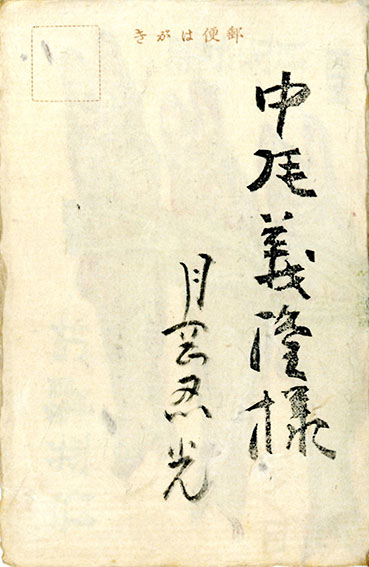 きがは便郵
中尾義隆様
月雲忍光